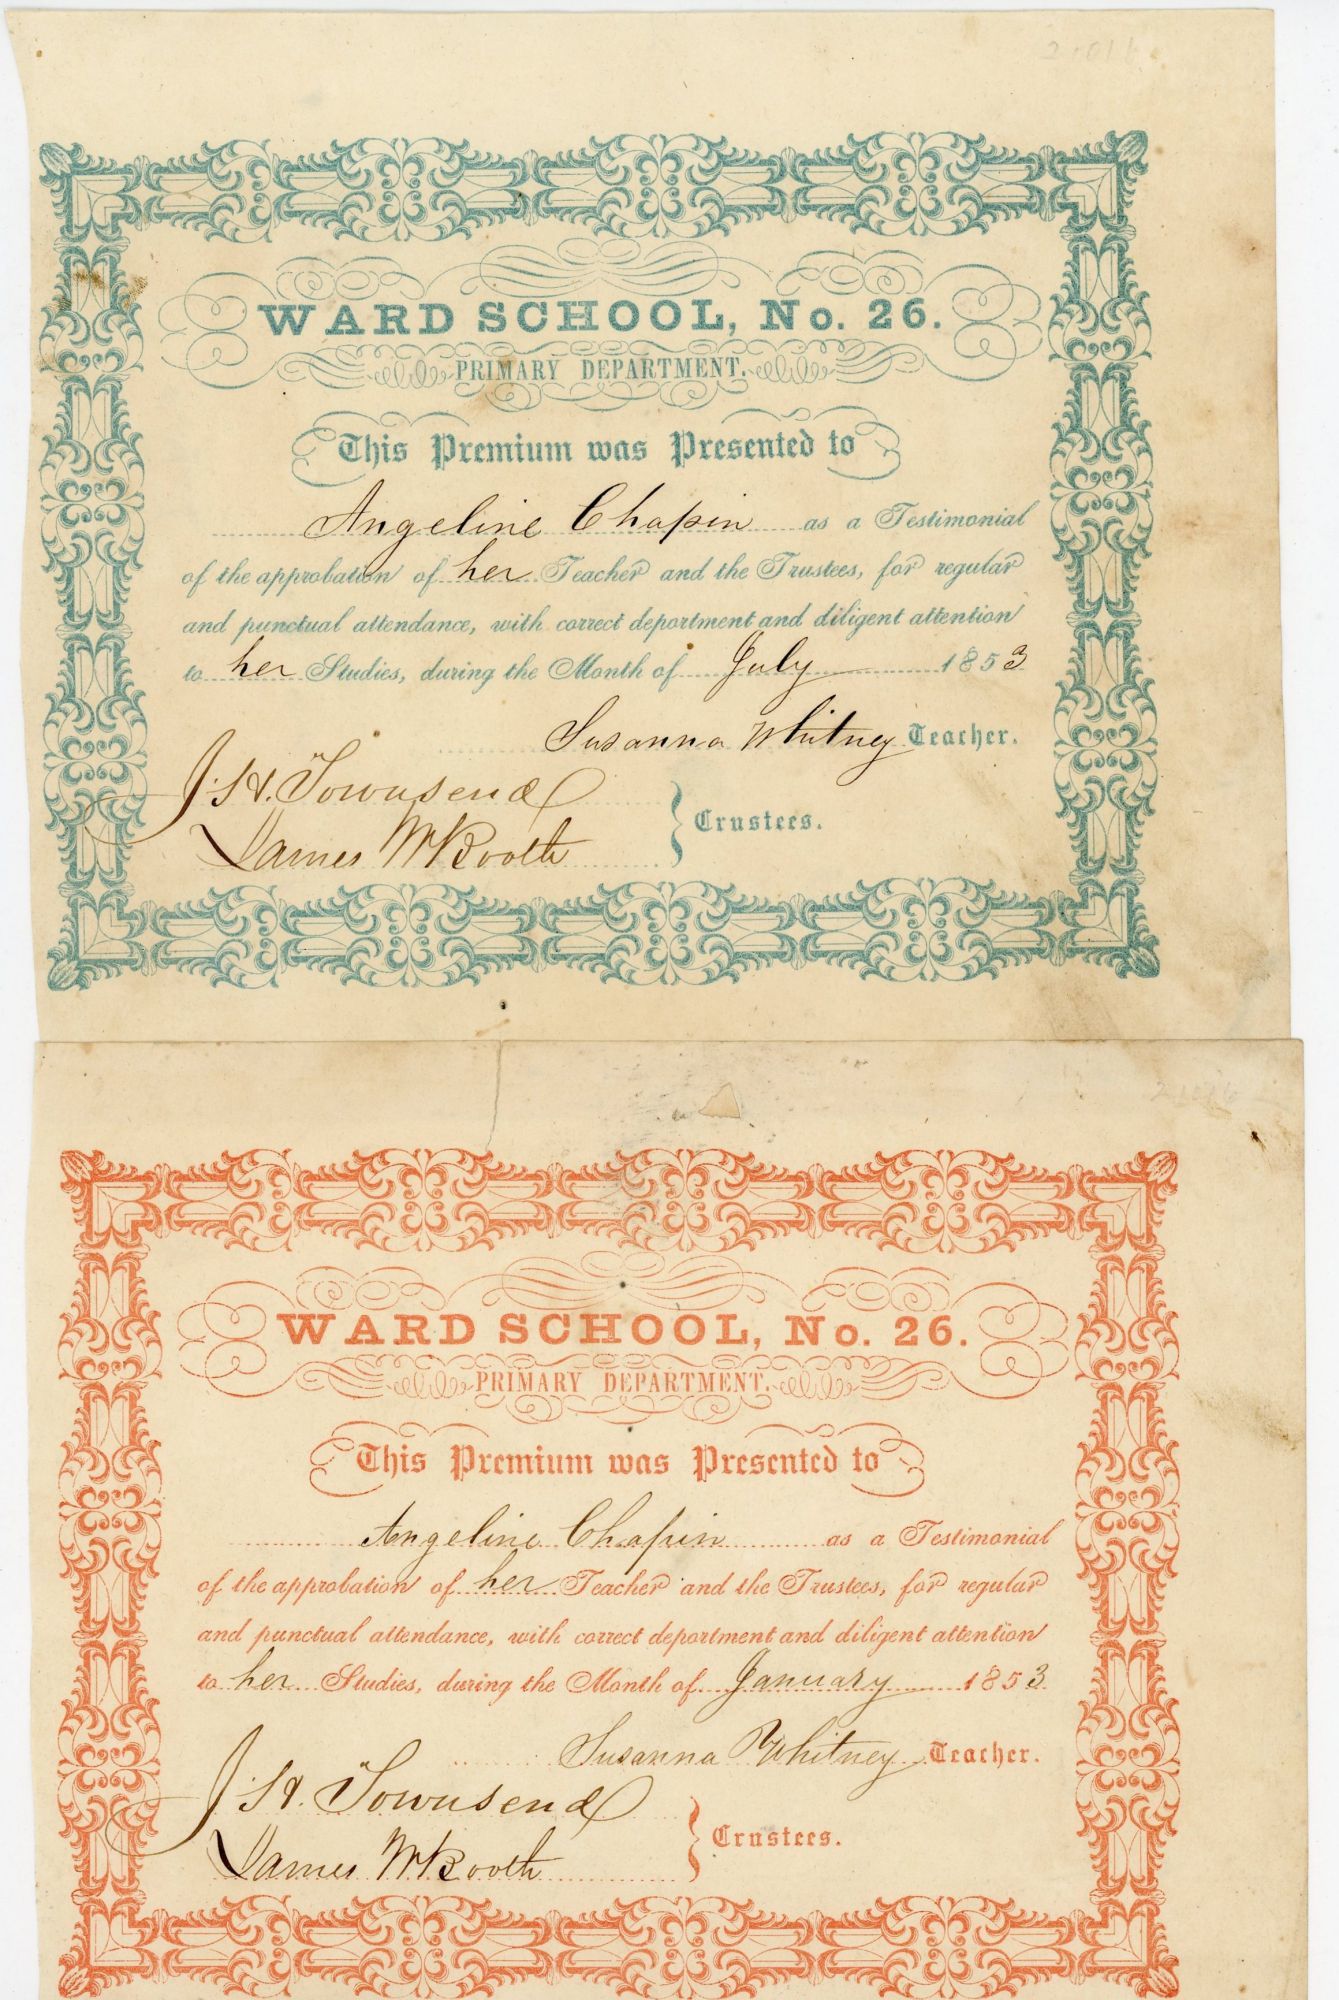 WARD SCHOOL, No. 26.
PRIMARY DEPARTMENT.
This Premium was Presented to
Angeline Chapin as a Testimonial
of the approbation of her Teacher and the Trustees, for regular
and punctual attendance, with correct deportment and diligent attention
to her Studies, during the Month of July 1853
Susanna Whitney Teacher.
J. H. Townsend
James W Booth
Trustees.
21016
WARD SCHOOL, No. 26.
PRIMARY DEPARTMENT.
This Premium was Presented to
Angeline Chapin as a Testimonial
of the approbation of her Teacher and the Trustees, for regular
and punctual attendance, with correct deportment and diligent attention
to her Studies, during the Month of January 1853
Susanna Whitney Teacher.
J. H. Townsend
James W Booth
Trustees.